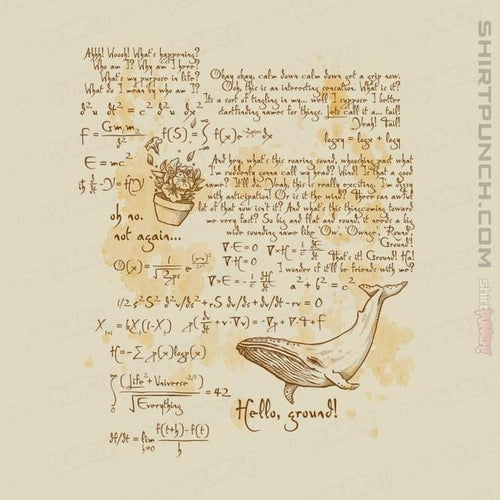 Ahhh! Woooh! What's happening?
Who am I? Why am I here?
What's my purpose in life?
What do I mean by who am I?
Okay okay, calm down calm down get a grip now.
Ooh, this is an interesting sensation. What is it?
Its a sort of tingling in my... well I suppose I better
start finding names for things. Lets call it a... tail!
Yeah! Tail!
d²u dt² = c² d²u dx²
F = Gm₁m₂
f(S) = ∫ f(x) dx
logxy = logx + logy
E = mc²
And hey, what's this roaring sound, whooshing past what
I'm suddenly gonna call my head? Wind! Is that a good
name? It'll do. Yeah, this is really exciting. I'm dizzy
with anticipation! Or is it the wind? There's an awful
lot of that now isn't it? And what's this thing coming toward
me very fast? So big and flat and round, it needs a big
wide sounding name like 'Ow', 'Ownge', 'Round',
'Ground'!
That's it! Ground! Ha!
I wonder if it'll be friends with me?
oh no.
not again...
∇·E = 0
∇·H = 0
a² + b² = c²
1/2 s²S² d²v/ds² + rS dv/ds + dv/dt - rv = 0
Xₜ₊₁ = kXₜ(1-Xₜ)
H = -∑ p(x) log p(x)
∫ (Life² + Universe⁻²/²) / √Everything = 42
df/dt = lim h→0 f(t+h) - f(t) / h
Hello, ground!
SHIRTPUNCH.COM